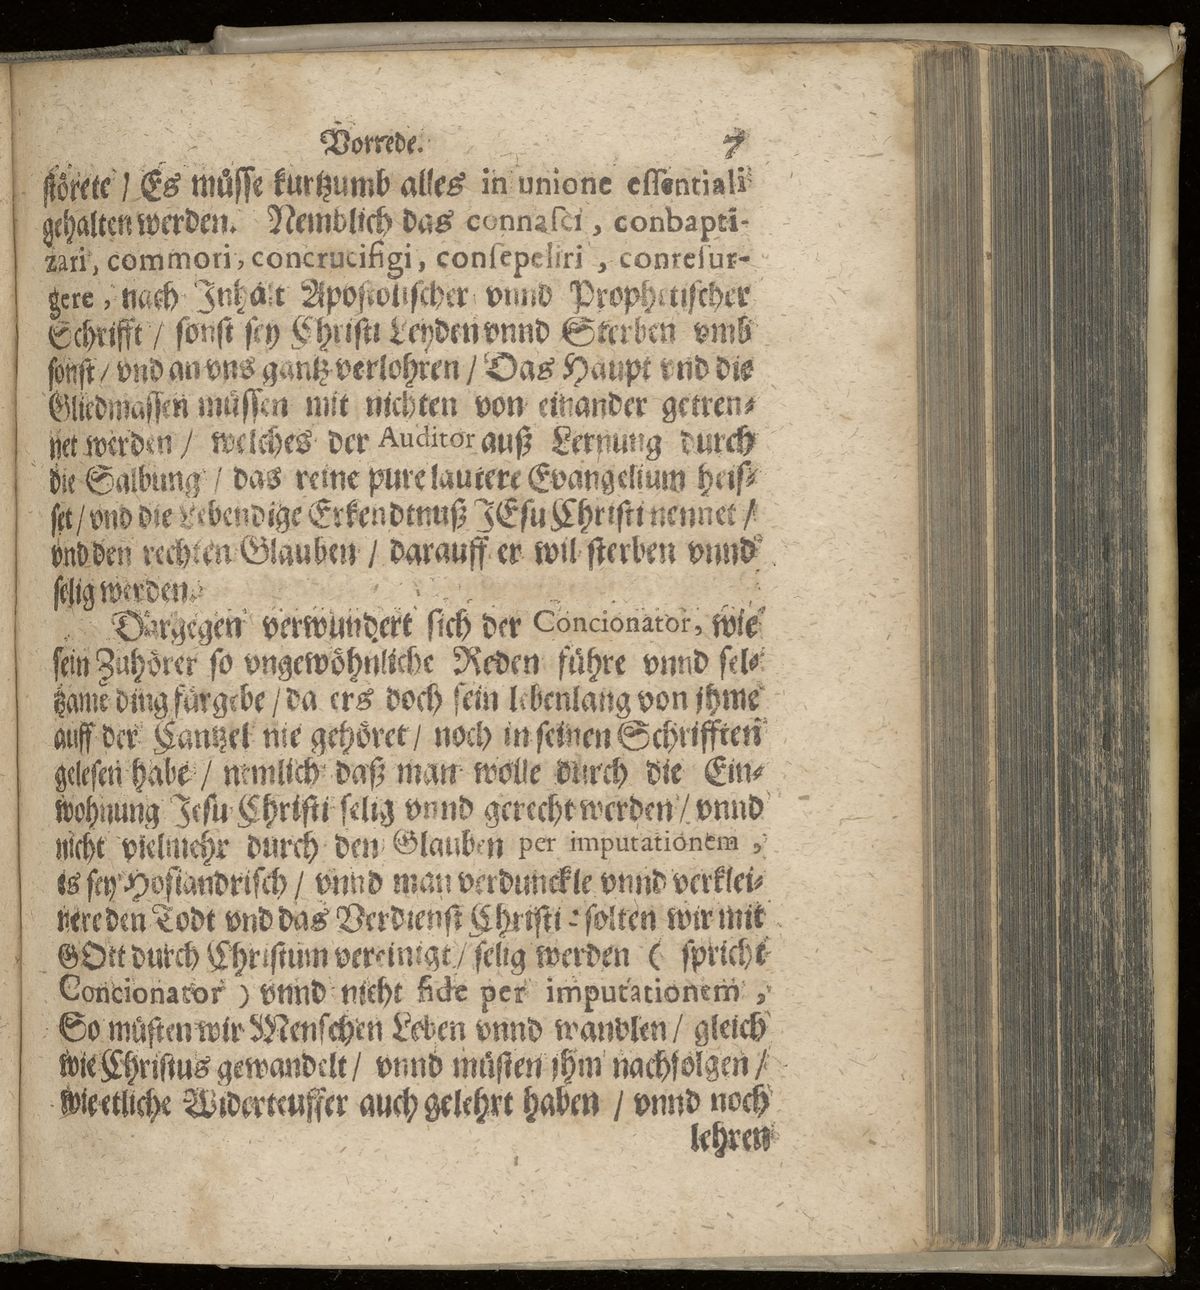 Vorrede. 7
störete / Es müsse kurtzumb alles in unione essentiali
gehalten werden. Nemblich das connasci, conbapti-
zari, commori, concrucifigi, consepeliri, conresur-
gere, nach Inhalt Apostolischer vnnd Prophetischer
Schrifft / sonst sey Christi Leyden vnnd Sterben vmb
sonst / vnd an vns gantz verlohren / Das Haupt vnd die
Gliedmassen müssen mit nichten von einander getren-
net werden / welches der Auditor auß Lernung durch
die Salbung / das reine pure lautere Evangelium heis-
set / vnd die Lebendige Erkendtnuß JEsu Christi nennet /
vnd den rechten Glauben / darauff er wil sterben vnnd
selig werden.
Dargegen verwundert sich der Concionator, wie
sein Zuhörer so vngewöhnliche Reden führe vnnd sel-
tzame ding fürgebe / da ers doch sein lebenlang von ihme
auff der Cantzel nie gehöret / noch in seinen Schrifften
gelesen habe / nemlich daß man wolle durch die Ein-
wohnung Jesu Christi selig vnnd gerecht werden / vnnd
nicht vielmehr durch den Glauben per imputationem,
es sey Hosiandrisch / vnnd man verdunckle vnnd verklei-
nere den Todt vnd das Verdienst Christi: solten wir mit
GOtt durch Christum vereinigt / selig werden ( spricht
Concionator ) vnnd nicht fide per imputationem,
So müsten wir Menschen Leben vnnd wandlen / gleich
wie Christus gewandelt / vnnd müsten ihm nachfolgen /
wie etliche Widerteuffer auch gelehrt haben / vnnd noch
lehren